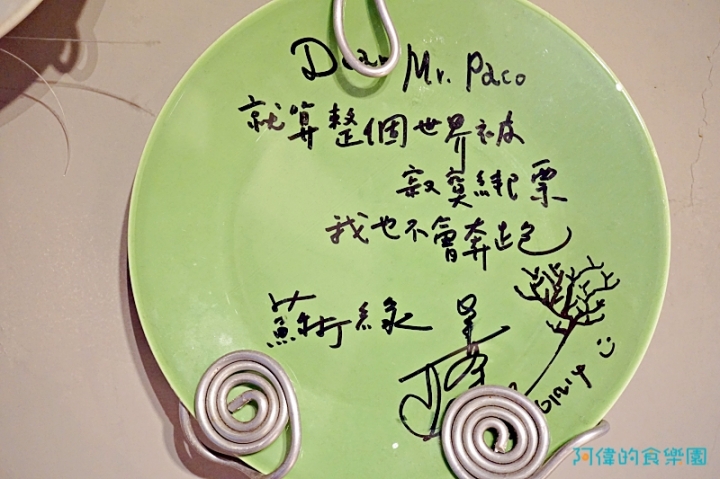 Dear Mr. Paco
就算整個世界被
寂寞綁票
我也不會奔跑
蘇打綠
阿偉的食樂園